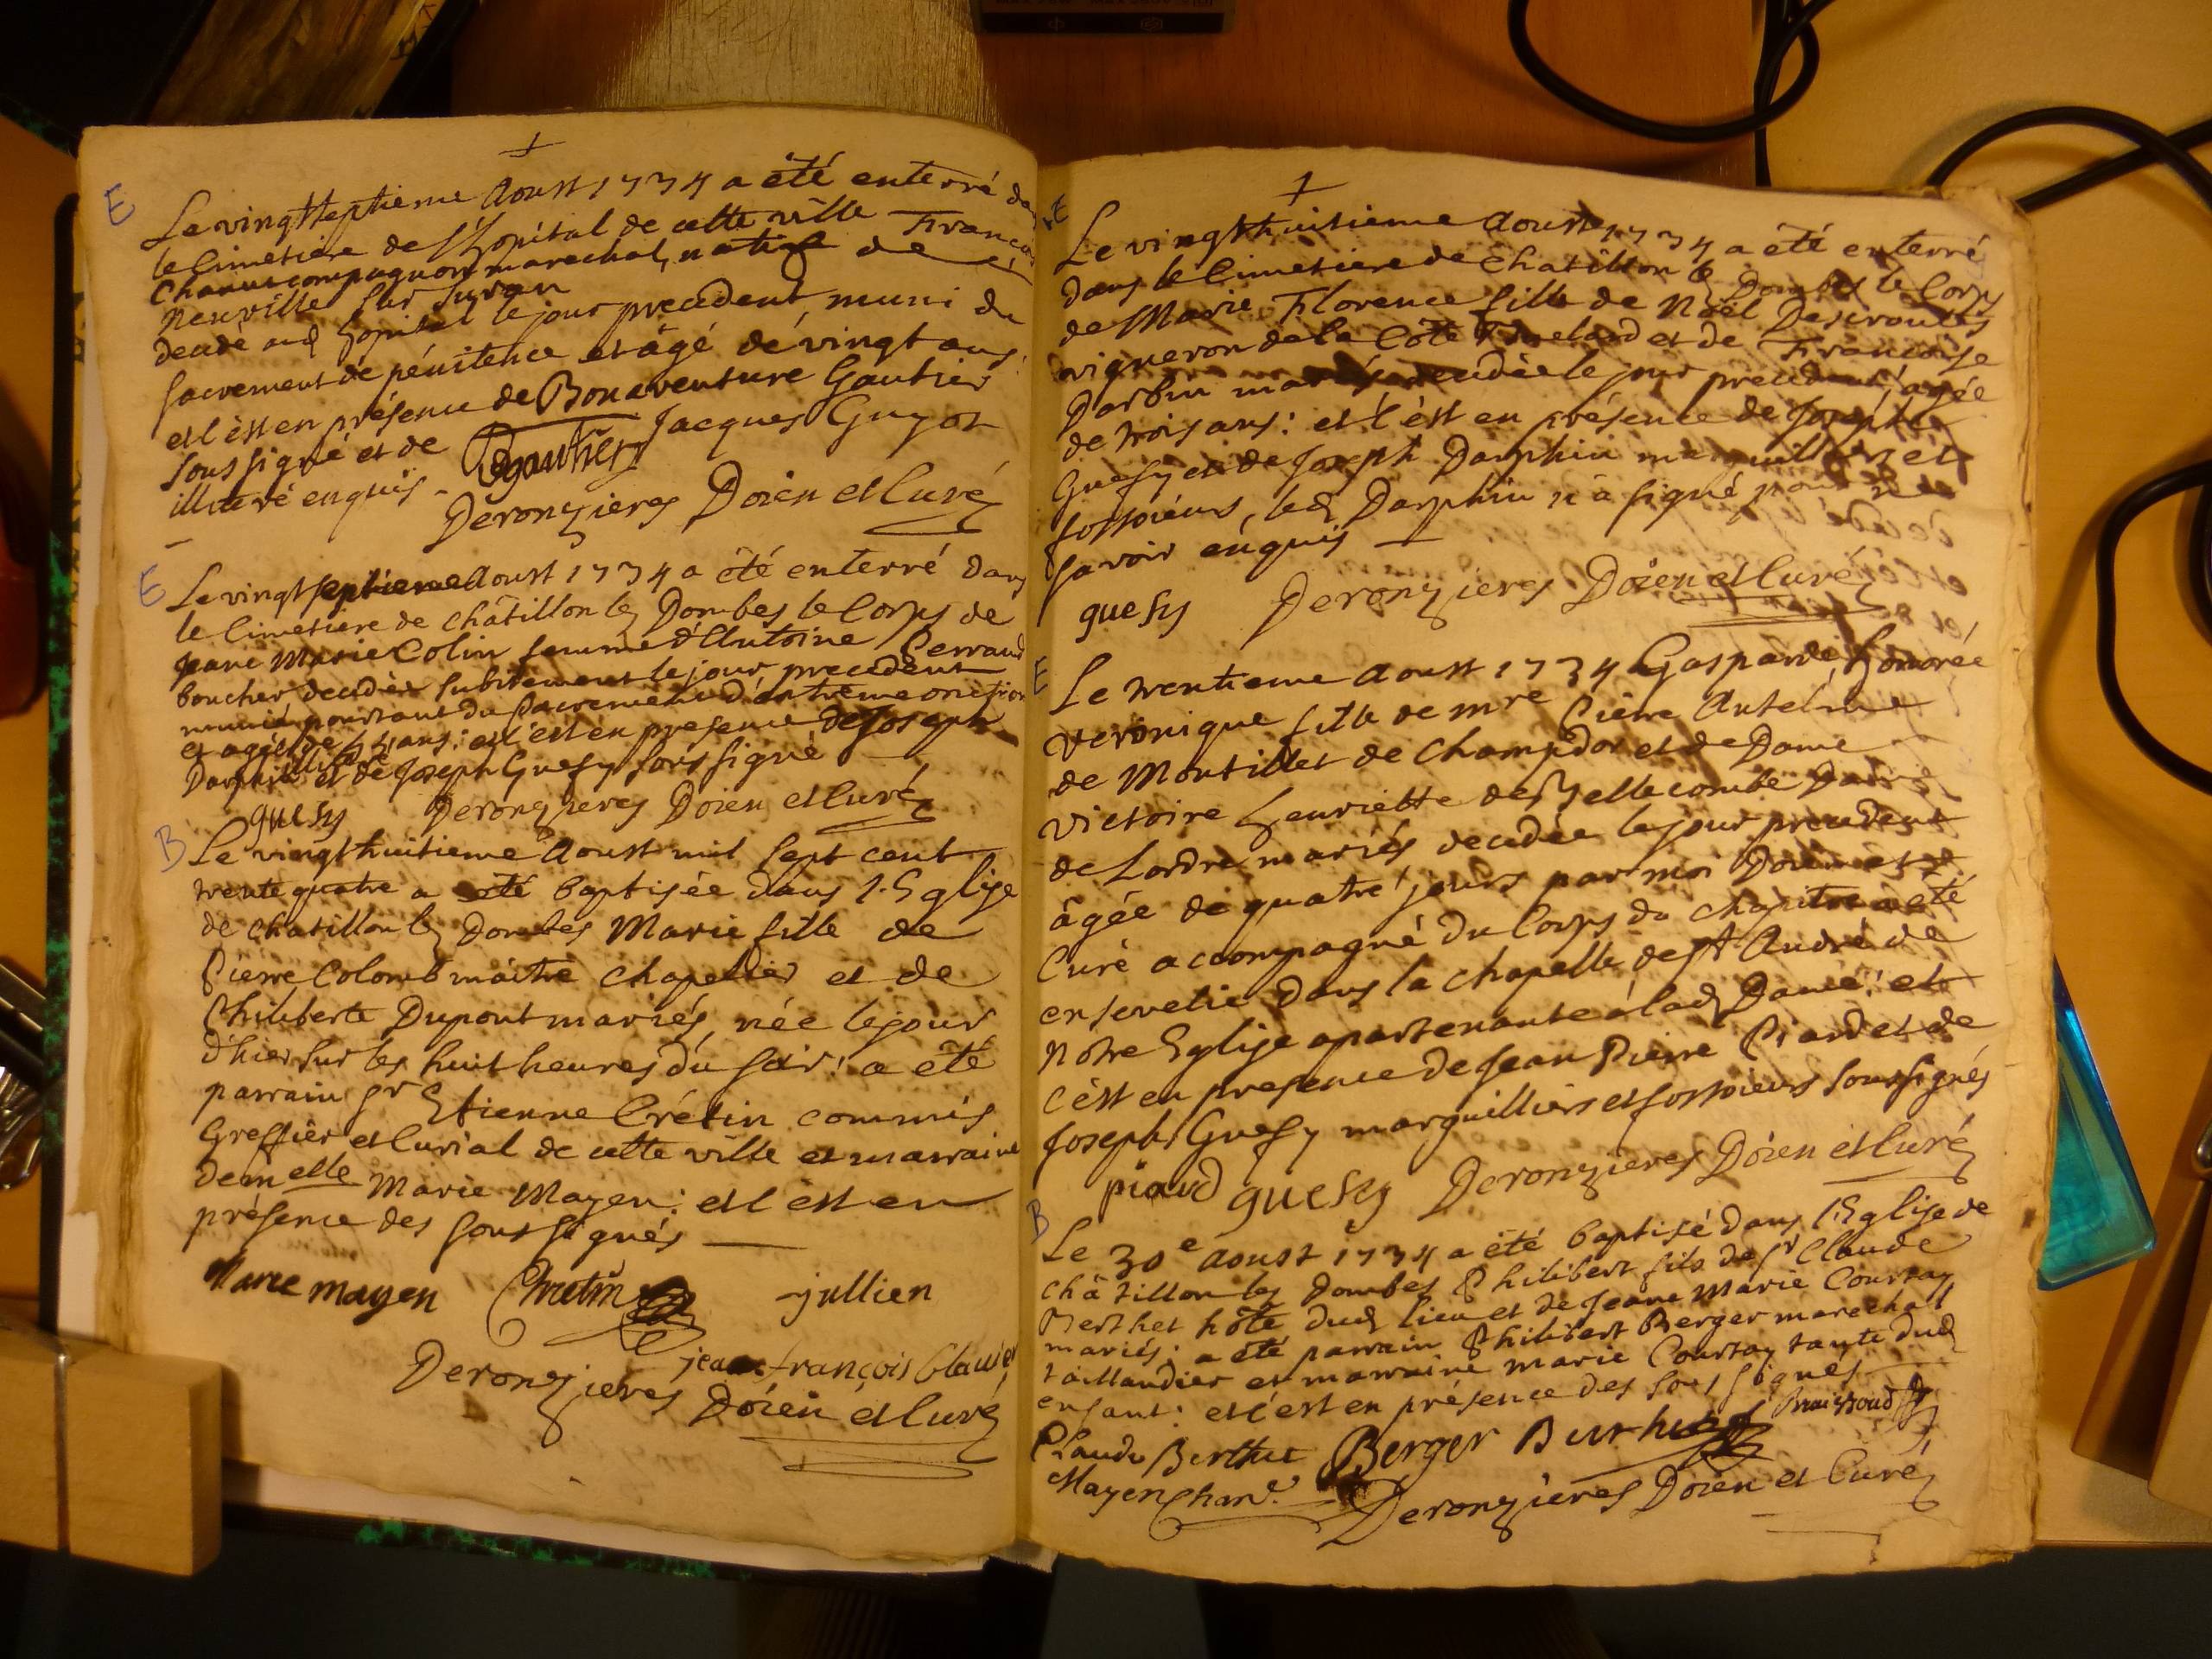 E
Le vingtseptieme Aoust 1734 a été enterré dans
le Cimetiere de l'hopital de cette ville François
Chanut compagnon marechal, natif de
neuville sur Suran
decedé aud hopital le jour precedent, muni du
sacrement de pénitence et âgé de vingt ans
et c'est en présence de Bonaventure Gautier
soussigné et de Jacques Guyot
Bgautier
illiteré enquis -
Deronzieres Doïen et Curé
E
Le vingt septieme Aoust 1734 a été enterré dans
le Cimetiere de châtillon les Dombes le Corps de
Jeane Marie Colin femme d'Antoine Perraud
boucher decedée subitement le jour precedent
munie pourtant du Sacrement d'extreme onction
et agée de ans: et c'est en presence de Joseph
Darphin et de Joseph Guesy soussigné
guesy Deronzieres Doïen et Curé
B
Le vingt huitieme Aoust mil sept cent
trente quatre a été baptisée dans l'Eglise
de chatillon les Dombes Marie fille de
Pierre Colomb maitre chapellier et de
Philiberte Dupont mariés, née le jour
d'hier sur les huit heures du soir: a été
parrain sr Etienne Crétin commis
Greffier et Curial de cette ville et marraine
demelle Marie Mayen: et c'est en
présence des soussignés
Marie mayen Chretin jullien
jean françois Clavier
Deronzieres Doïen et Curé
E
Le vingthuitieme Aoust 1734 a été enterré
dans le Cimetiere de Chatillon les Dombes le Corps
de Marie Florence fille de Noël Descroutes
vigneron de la Côte et de Françoise
Darbin mariés, decedée le jour precedent, agée
de trois ans: et c'est en présence de Joseph
Guesy et de Joseph Darphin marguilliers et
fossoieurs, led Darphin n'a signé pour ne
savoir enquis
guesy Deronzieres Doïen et Curé
E
Le trentieme Aoust 1734 Gasparde honorée
veronique fille de mre Pierre Antelme
de Montillet de Champdor et de Dame
victoire henriette de Bellecombe Dame
de Lordre mariés, decedée le jour precedent
âgée de quatre jours par moi Doïen et
Curé accompagné du Corps du chapitre a été
ensevelie dans la chapelle de st André de
notre Eglise apartenante à lad Dame: et
c'est en presence de Jean Pierre Piard et de
Joseph Guesy marguilliers et fossoieurs soussignés
piard guesy Deronzieres Doïen et Curé
B
Le 30e Aoust 1734 a été baptisé dans l'Eglise de
châtillon les Dombes Philibert fils de sr Claude
Berthet hôte dud lieu et de Jeane Marie Courtay
mariés: a été parrain Philibert Berger marechal
taillandier et marraine marie Courtay tante dud
enfant: et c'est en présence des soussignés
Claude Berthet Berger
Mayen
Deronzieres Doïen et Curé